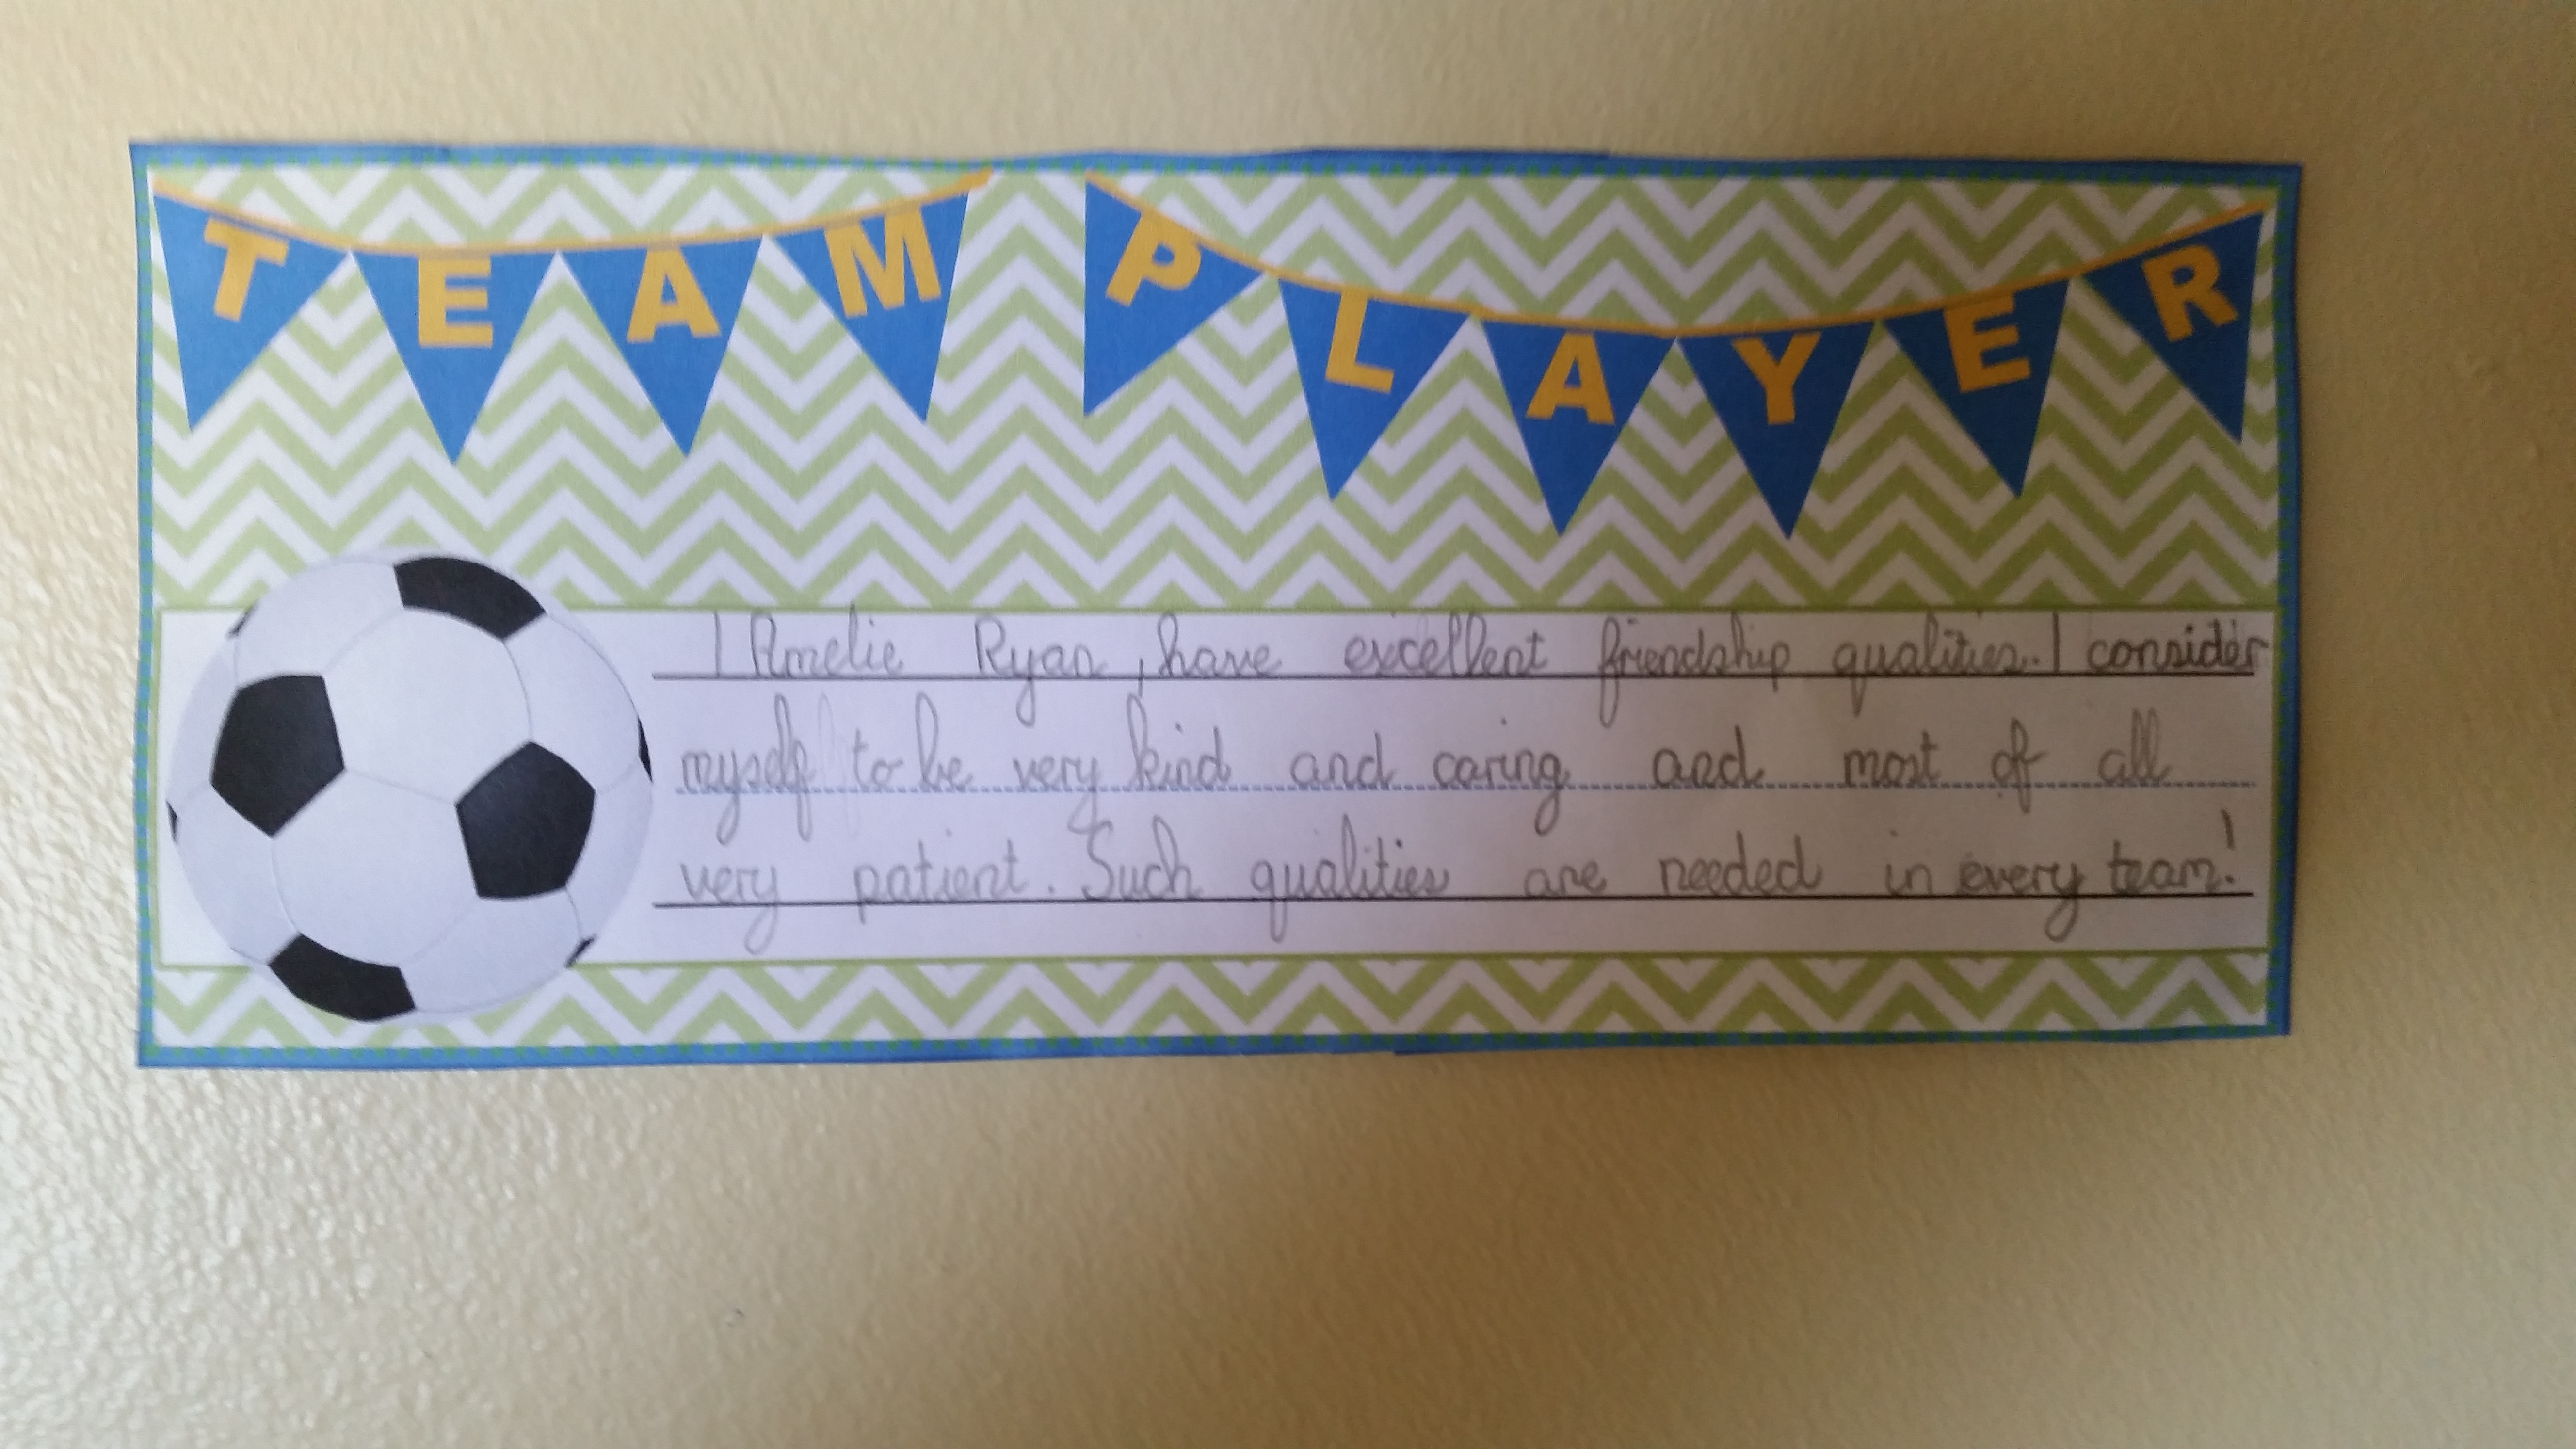 TEAM PLAYER
I Amelie Ryan, have excellent friendship qualities. I consider
myself to be very kind and caring and most of all
very patient. Such qualities are needed in every team!